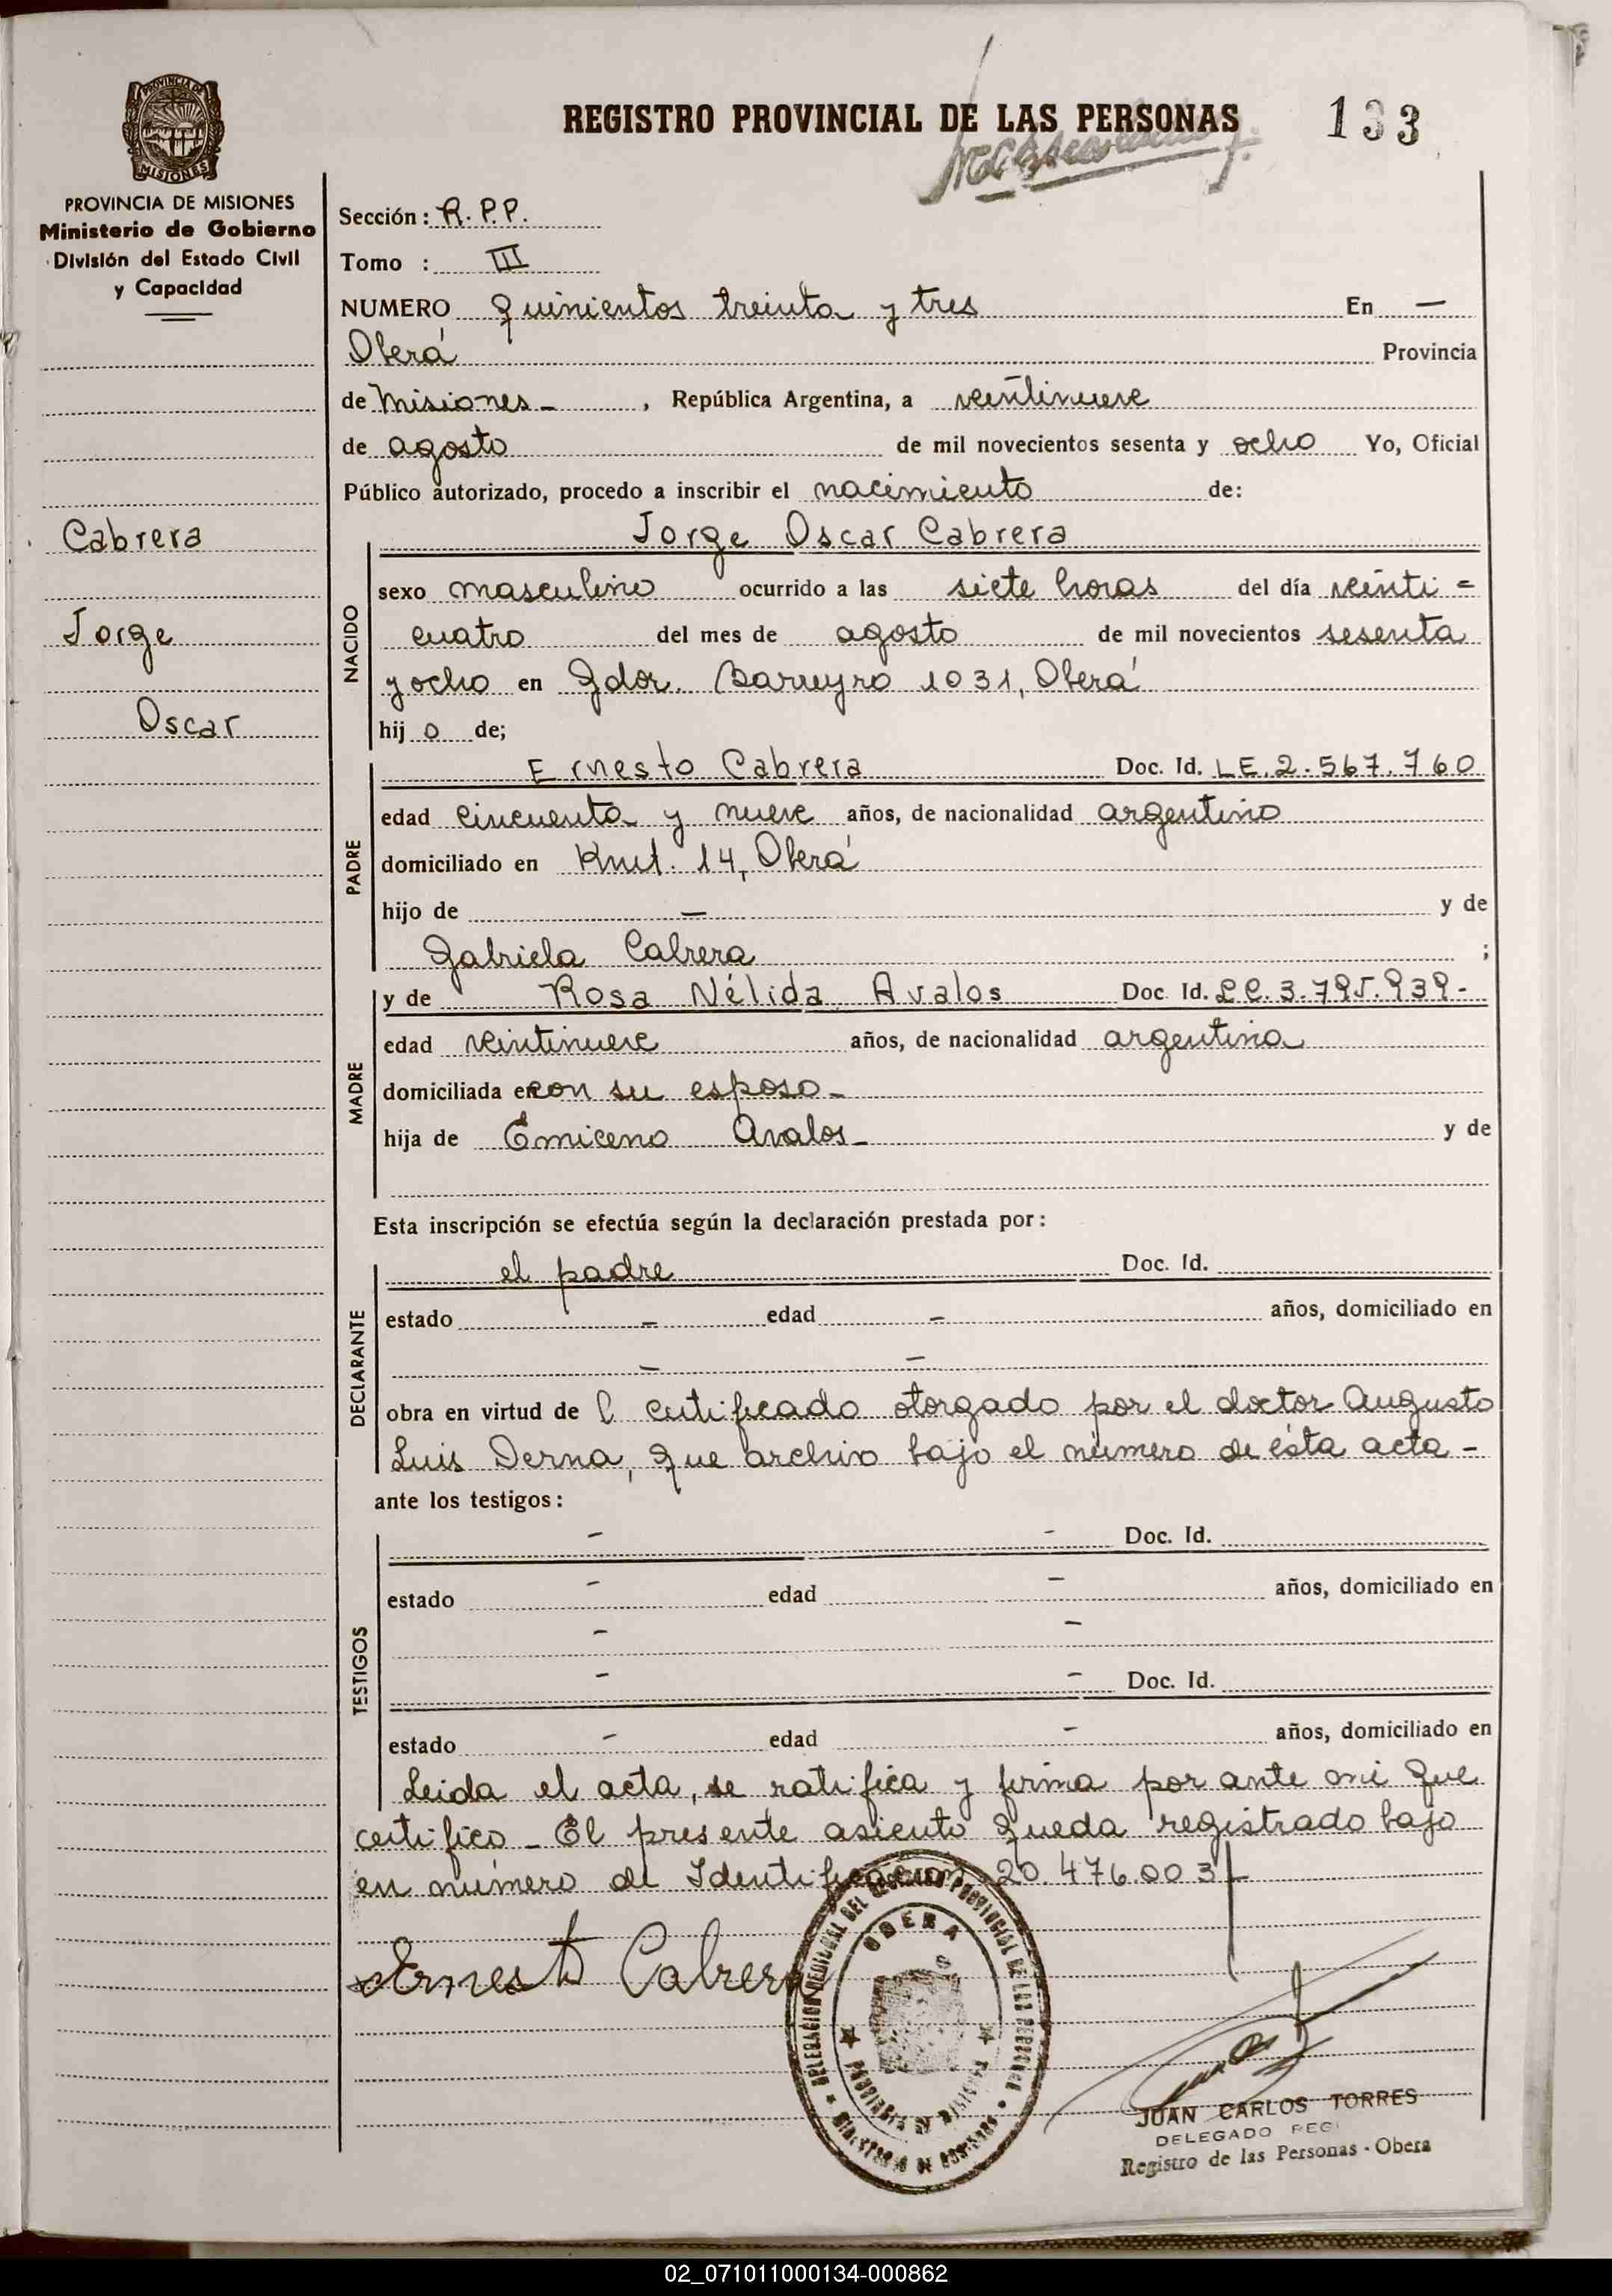 REGISTRO PROVINCIAL DE LAS PERSONAS 133
PROVINCIA DE
MISIONES
PROVINCIA DE MISIONES
Ministerio de Gobierno
División del Estado Civil
y Capacidad
Cabrera
Jorge
Oscar
Sección: R.P.P.
Tomo : III
NUMERO Quinientos treinta y tres En —
Oberá Provincia
de Misiones - , República Argentina, a veintinueve
de agosto de mil novecientos sesenta y ocho Yo, Oficial
Público autorizado, procedo a inscribir el nacimiento de:
Jorge Oscar Cabrera
NACIDO
sexo masculino ocurrido a las siete horas del día veinti =
cuatro del mes de agosto de mil novecientos sesenta
y ocho en Gdor. Barreyro 1031, Oberá
hij o de;
PADRE
Ernesto Cabrera Doc. Id. LE. 2.567.760
edad cincuenta y nueve años, de nacionalidad argentino
domiciliado en Kmt. 14, Oberá
hijo de — y de
Gabriela Cabrera ;
MADRE
y de Rosa Nélida Avalos Doc. Id. LC. 3.795.939-
edad veintinueve años, de nacionalidad argentina
domiciliada en con su esposo -
hija de Emiceno Avalos - y de
Esta inscripción se efectúa según la declaración prestada por:
DECLARANTE
el padre Doc. Id.
estado - edad - años, domiciliado en
- -
obra en virtud de l certificado otorgado por el doctor Augusto
Luis Derna, que archivo bajo el número de ésta acta -
ante los testigos:
TESTIGOS
- - Doc. Id.
estado - edad - años, domiciliado en
- -
- - Doc. Id.
estado - edad - años, domiciliado en
Leida el acta, se ratifica y firma por ante mi que
certifico - El presente asiento queda registrado bajo
en número de Identificación 20.476.003
Ernesto Cabrera
DELEGACION REGIONAL DEL REGISTRO PROVINCIAL DE LAS PERSONAS
OBERA
PROVINCIA DE MISIONES
MINISTERIO DE GOBIERNO
JUAN CARLOS TORRES
DELEGADO REGI
Registro de las Personas - Obera
02_071011000134-000862